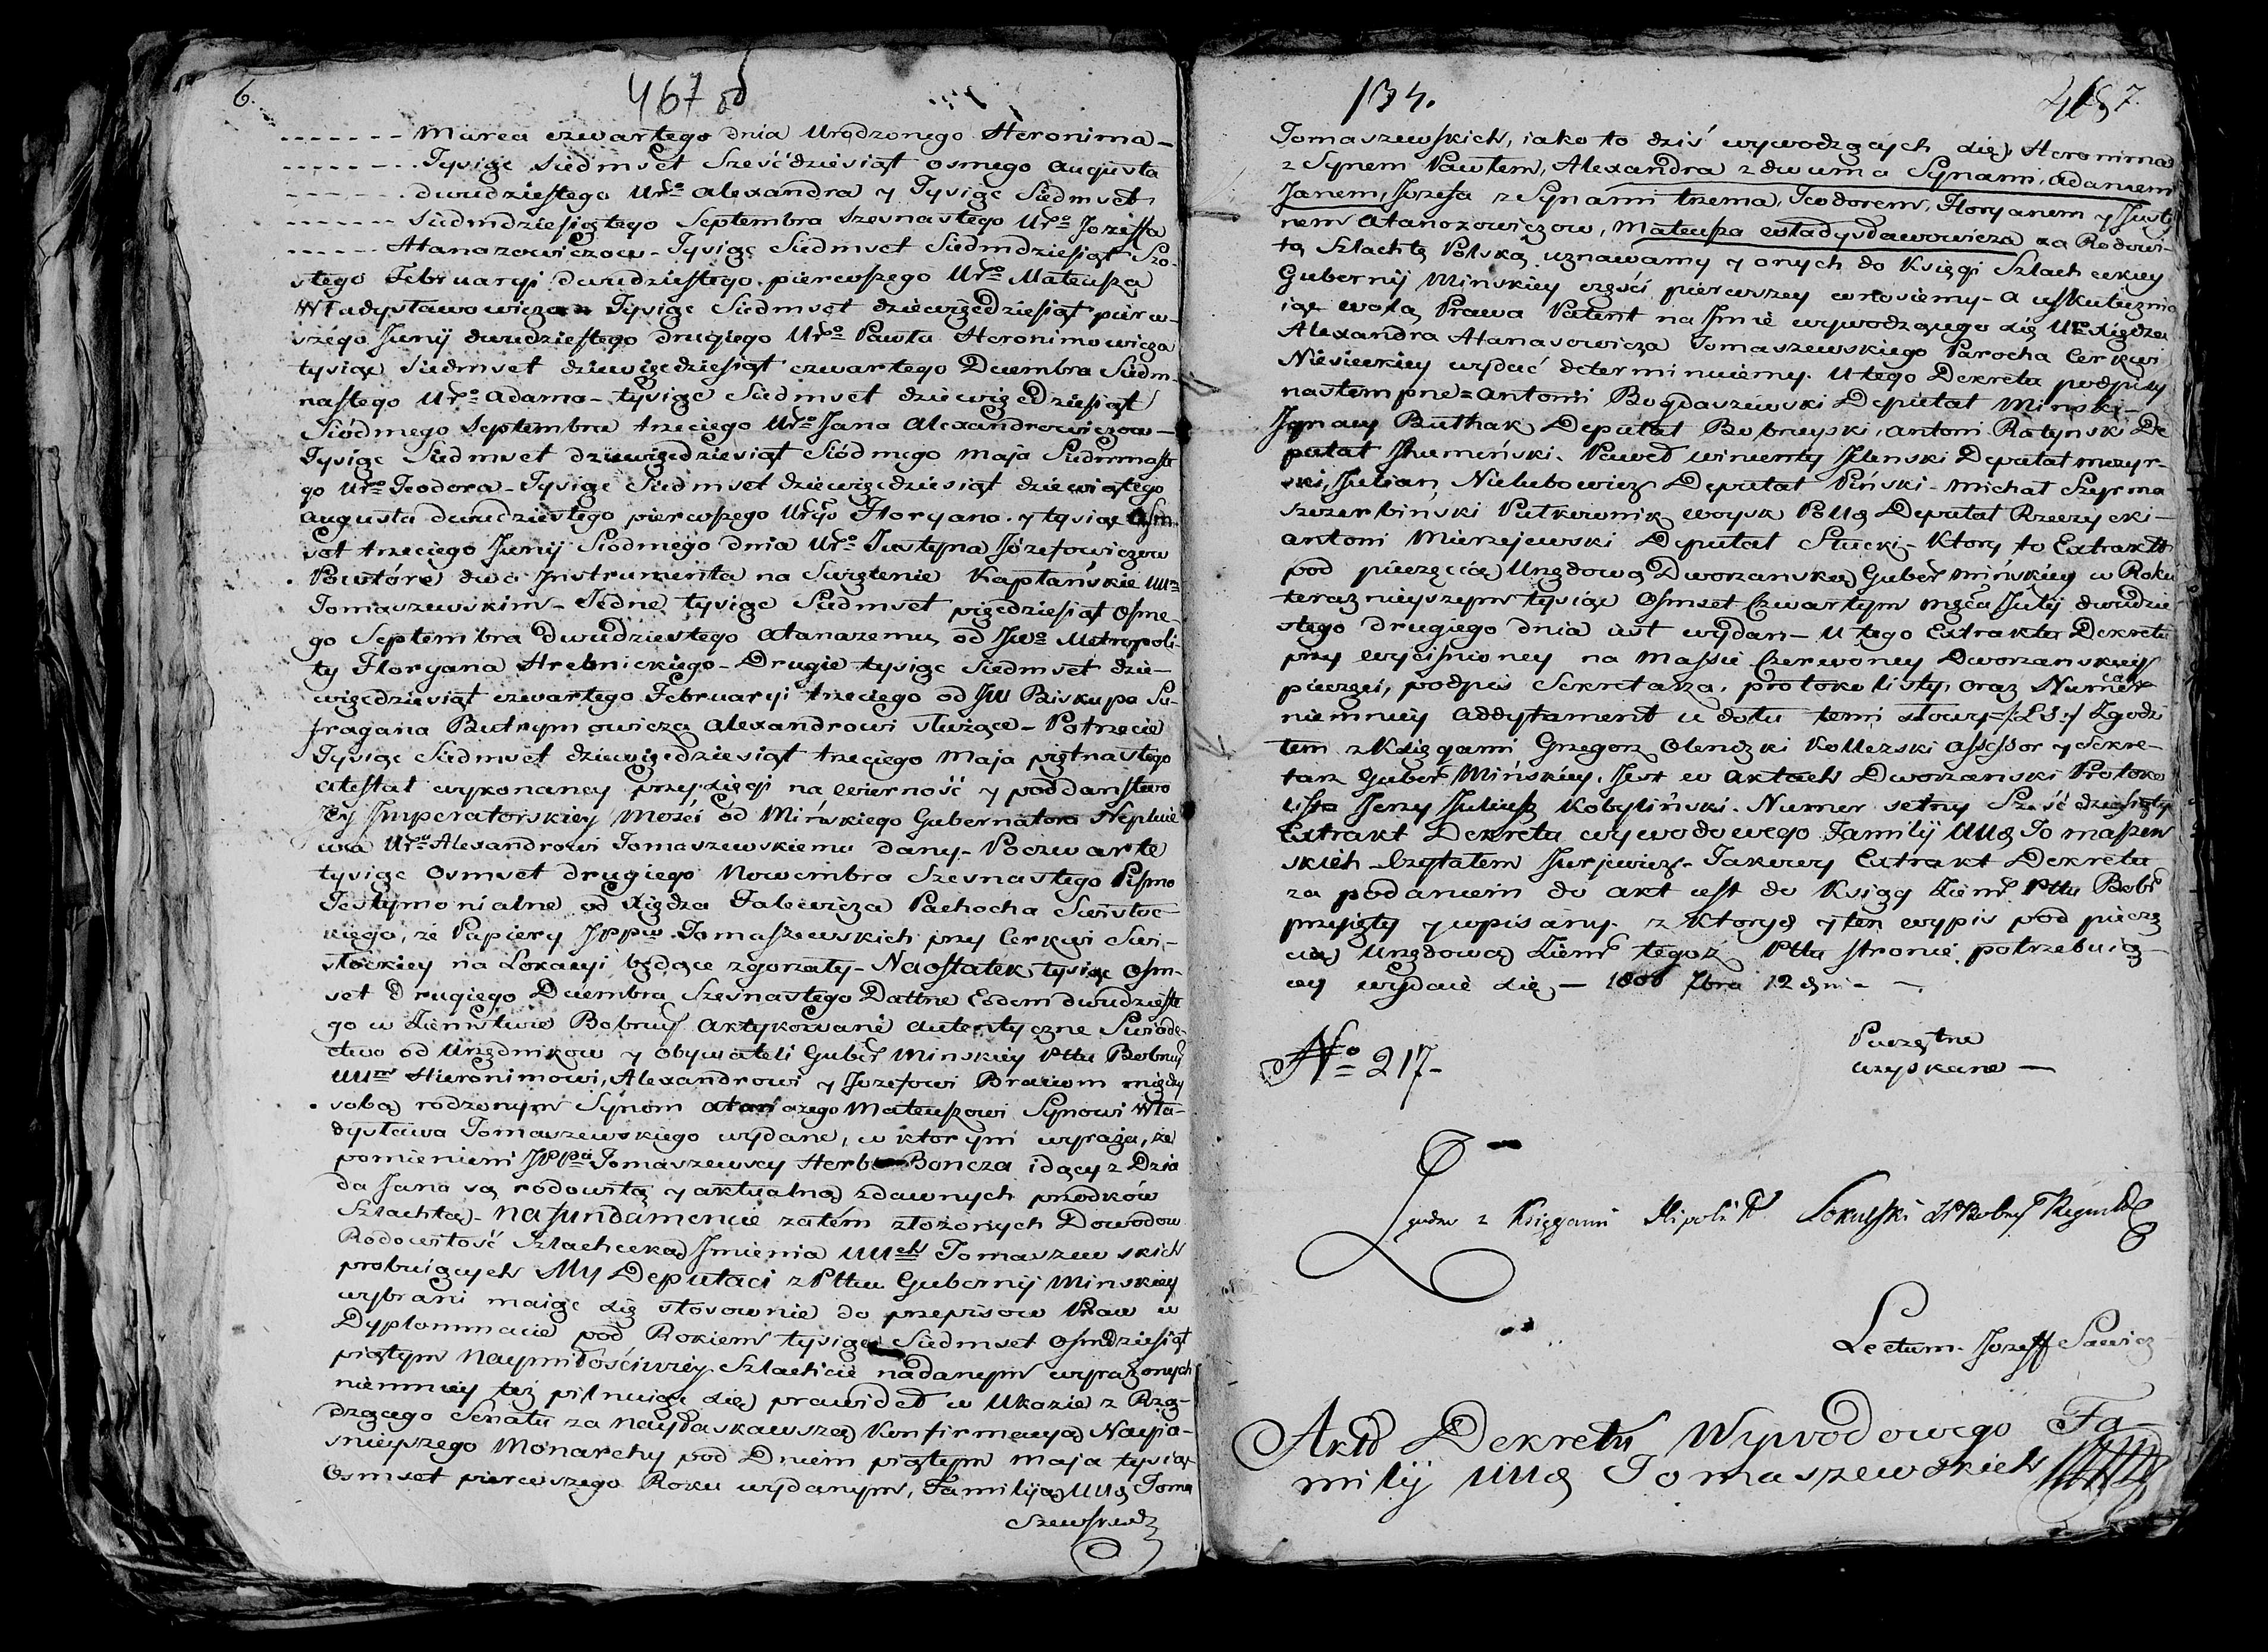 6.
467 od
- - - - - - - Marca czwartego dnia Urodzonego Heronima -
- - - - - - - Tysiąc Siedmset Sześćdziesiąt osmego Augusta
- - - - - - - dwudziestego Ur° Alexandra y Tysiąc Siedmset
- - - - - - Siedmdziesiątego Septembra szesnastego Ur° Jozeffa
- - - - - Atanazowiczow - Tysiąc Siedmset Siedmdziesiąt Szo-
stego Februaryi dwudziestego pierwszego Ur° Mateusza
Władysławowicza - Tysiąc Siedmset dziewięcdziesiąt pierw-
szego Junij dwudziestego drugiego Ur° Pawła Heronimowicza
tysiąc siedmset dziewięcdziesiąt czwartego Decembra Siedm-
nastego Ur° Adama - tysiąc Siedmset dziewięcdziesiąt
Siódmego Septembra trzeciego Ur° Jana Alexandrowiczow -
Tysiąc Siedmset dziewięcdziesiąt Siódmego Maja Siedmnaste
go Ur° Teodora - Tysiąc Siedmset dziewięcdziesiąt dziewiątego
Augusta dwudziestego pierwszego Ur° Floryana y tysiąc Osm-
set trzeciego Junij Siodmego dnia Ur° Justyna Józefowiczow
Powtóre dwa Instrumenta na Swięcenie Kapłańskie UU
Tomaszewskim - Jedne tysiąc Siedmset pięcdziesiąt Osme-
go Septembra Dwudziestego Atanazemu od JW° Metropoli-
ty Floryana Hrebnickiego - Drugie tysiąc Siedmset dzie-
więcdziesiąt czwartego Februaryi trzeciego od JW Biskupa Su-
fragana Butrymowicza Alexandrowi służące - Potrzecie
Tysiąc Siedmset dziewięcdziesiąt trzeciego Maja piętnastego
atestat wykonaney przysięgi na wierność y poddanstwo
Jey Imperatorskiey Mości od Mińskiego Gubernatora Nepluie
wa Ur° Alexandrowi Tomaszewskiemu dany - Poczwarte
tysiąc Osmset drugiego Nowembra Szesnastego Pismo
Testymonialne od Xiędza Falewicza Parocha Swisłoc-
kiego, że Papiery JPPw Tomaszewskich przy Cerkwi Swi-
słockiey na Lokacyi będące zgorzały - Naostatek tysiąc Osm-
set Drugiego Decembra Szesnastego Datne Eodem dwudzieste
go w Ziemstwie Bobruy aktykowane autentyczne Swiade-
ctwo od Urzędnikow y Obywateli Guber Minskiey Pttu Bobruy
UUm Hieronimowi, Alexandrowi y Jozefowi Braciom między
sobą rodzonym Synom Atanazego Mateuszowi Synowi Wła-
dysława Tomaszewskiego wydane, w ktorym wyraża, że
pomienieni JPPa Tomaszewscy Herbu Boncza idący z Dzia
da Jana są rodowitą y aktualną zdawnych przodków
Szlachtą - Na fundamencie zatém złożonych Dowodow
Rodowitość Szlachecką Jmienia UUch Tomaszewskich
probuiących My Deputaci z Pttw Gubernij Minskiey
wybrani maiąc się stosownie do przepisow Praw w
Dyplommacie pod Rokiem tysiąc Siedmset Osmdziesiąt
piątym Naymiłościwiey Szlachcie nadanym wyrażonych
niemniey też pilnuiąc się prawideł w Ukazie z Rzą-
dzącego Senatu za Nayłaskawszą Konfirmacyą Nayja-
śnieyszego Monarchy pod Dniem piątym Maja tysiąc
Osmset pierwszego Roku wydanym, Familiją UU Toma
szewskich
134.
467.
Tomaszewskich, iako to dziś wywodzących się, Heronima
z Synem Pawłem, Alexandra z dwuma Synami, Adamem
Janem, Jozefa z Synami trzema, Teodorem, Floryanem y Justy
nem Atanazowiczow, Mateusza Władysławowicza za Rodowi-
tą Szlachtę Polską uznawamy y onych do Księgi Szlacheckiey
Gubernij Minskiey części pierwszey wnosiemy - a uskutecznia
iąc wolą Prawa Patent na Jmie wywodzącego się UX Xiędza
Alexandra Atanasowicza Tomaszewskiego Parocha Cerkwi
Niesieckiey wydać determinuiemy. U tego Dekretu podpisy
nastempne = Antoni Bogdaszewski Deputat Minski -
Ignacy Bułhak Deputat Bobruyski, Antoni Ratynski De
putat Jhumeński. Paweł Wincenty Jelenski Deputat Mozyr-
ski, Julian Nielubowicz Deputat Piński - Michał Szyrma
Szczerbinski Pułkownik woysk Pol Deputat Rzeczycki -
Antoni Mierzejewski Deputat Słucki - Ktory to Extrakt
pod pieczęcią Urzędową Dworzanską Guber Mińskiey w Roku
teraznieyszym tysiąc Osmset Czwartym mca Julij dwudzie
stego drugiego dnia iest wydan - U tego Extraktu Dekretu
przy wyciśnioney na massie Czerwoney Dworzanskiey
pieczęci, podpis Sekretarza, protokolisty, oraz Numer
niemniey addytament u dołu temi słowy =/:LS:/ Zgodz
tem z Księgami Grzegorz Olenczki Kolleżski Assessor y Sekre-
tarz Guber Mińskiey. Jest w Aktach Dworzanski Protoko
lista Jerzy Juliusz Kobyliński. Numer setny Sześćdziesiąty
Extrakt Dekretu wywodowego Familij UU Tomaszew
skich Czytałem Jurjewicz - Takowy Extrakt Dekretu
za podaniem do Akt iest do Xiąg Ziem Pttu Bobr
przyięty y wpisany. z Ktorych y ten wypis pod piecz
cią Urzędową Ziem tegoż Pttu stronie potrzebuią-
cey wydaie się - 1806 7bra 12 dni -
Pieczętne
uzyskane -
N° 217 -
Zgodno z Księgami Hipolit Sokulski
Lectum Jozeff Sawicz
Akt Dekretu Wywodowego Fa-
milij UU Tomaszewskich